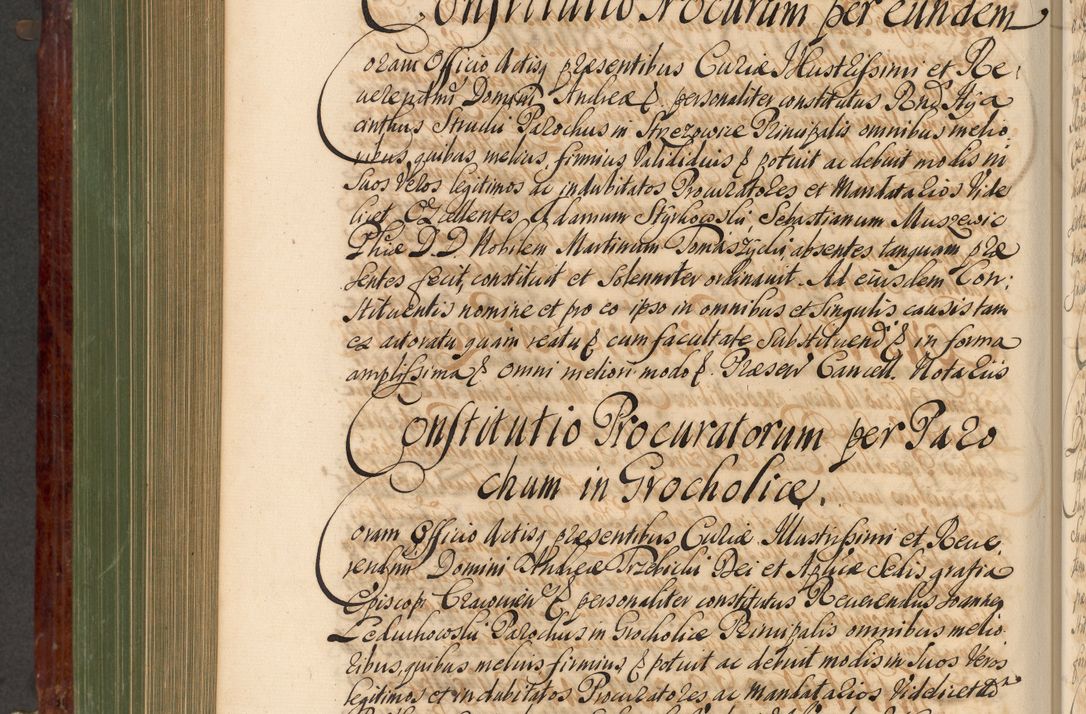 Constitutio Procurum per eundem
Coram Officio Actisq præsentibus Curiæ Illustrissimi et Re:
uerendmi Domini Andreæ &. personaliter constitutus Rnd. Hya
cinthus Parochus in Principalis omnibus melio
ribus, quibus, melius, firmius, Valididuis & potuit ac debuit modis in
Suos Veros legitimos ac indubitatos Procuratores et Mandatarios Vide
licet Exzellentes Adamum Stijkowski, Sebastianum Muszewic
Phiæ D. D. Nobilem Martinum absentes tanquam præ
sentes fecit, constituit et Solenniter ordinauit. Ad eiusdem Con:
stituentis nomine et pro eo ipso in omnibus et singulis causis tam
ex actoratu quam reatu & cum facultate Substituend & in forma
amplissima & omni meliori modo &. Præsen Cancell. Notarius
Constitutio Procuratorum per Paro
chum in Grocholice.
Coram Officio Actisq præsentibus Curiæ Illustrissimi et Reue,
rendmi Domini Andreæ Trzebicki Dei et Aplicæ Sedis gratia
Episcopi Cracouien & personaliter constitutus Reuerendus Joannes
Leduchowski Parochus in Grocholice Principalis omnibus melio
ribus, quibus melius firmius, & potuit ac debuit modis in Suos Veros
legitimos et indubitatos Procuratores ac Mandatarios Videlicet